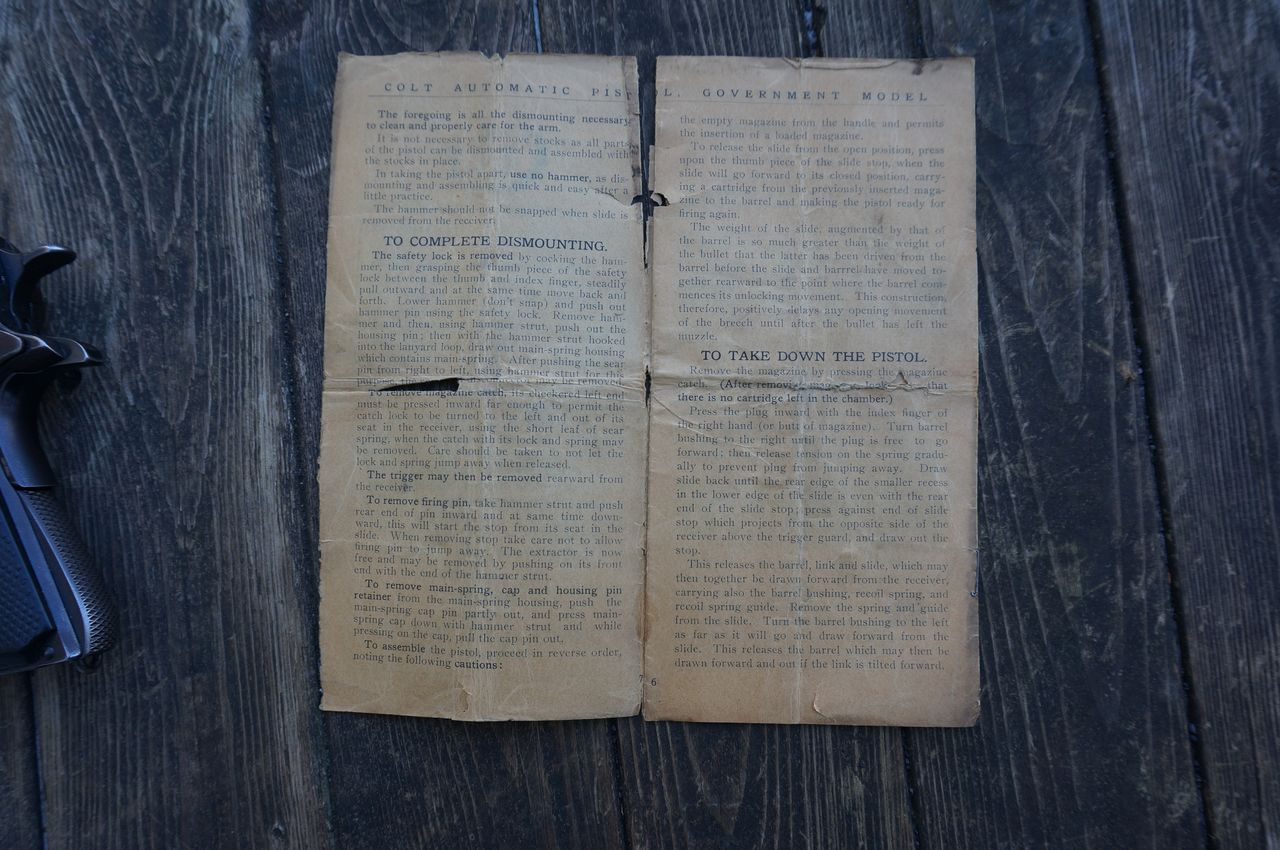 COLT AUTOMATIC PIS
The foregoing is all the dismounting necessary
to clean and properly care for the arm.
It is not necessary to remove stocks as all parts
of the pistol can be dismounted and assembled with
the stocks in place.
In taking the pistol apart, use no hammer, as dis-
mounting and assembling is quick and easy after a
little practice.
The hammer should not be snapped when slide is
removed from the receiver.
TO COMPLETE DISMOUNTING.
The safety lock is removed by cocking the ham-
mer, then grasping the thumb piece of the safety
lock between the thumb and index finger, steadily
pull outward and at the same time move back and
forth. Lower hammer (don't snap) and push out
hammer pin using the safety lock. Remove ham-
mer and then, using hammer strut, push out the
housing pin; then with the hammer strut hooked
into the lanyard loop, draw out main-spring housing
which contains main-spring. After pushing the sear
pin from right to left, using hammer strut for this
purpose, the may be removed.
To remove magazine catch, its checkered left end
must be pressed inward far enough to permit the
catch lock to be turned to the left and out of its
seat in the receiver, using the short leaf of sear
spring, when the catch with its lock and spring may
be removed. Care should be taken to not let the
lock and spring jump away when released.
The trigger may then be removed rearward from
the receiver.
To remove firing pin, take hammer strut and push
rear end of pin inward and at same time down-
ward, this will start the stop from its seat in the
slide. When removing stop take care not to allow
firing pin to jump away. The extractor is now
free and may be removed by pushing on its front
end with the end of the hammer strut.
To remove main-spring, cap and housing pin
retainer from the main-spring housing, push the
main-spring cap pin partly out, and press main-
spring cap down with hammer strut and while
pressing on the cap, pull the cap pin out.
To assemble the pistol, proceed in reverse order,
noting the following cautions:
7
L, GOVERNMENT MODEL
the empty magazine from the handle and permits
the insertion of a loaded magazine.
To release the slide from the open position, press
upon the thumb piece of the slide stop, when the
slide will go forward to its closed position, carry-
ing a cartridge from the previously inserted maga-
zine to the barrel and making the pistol ready for
firing again.
The weight of the slide, augmented by that of
the barrel is so much greater than the weight of
the bullet that the latter has been driven from the
barrel before the slide and barrrel have moved to-
gether rearward to the point where the barrel com-
mences its unlocking movement. This construction,
therefore, positively delays any opening movement
of the breech until after the bullet has left the
muzzle.
TO TAKE DOWN THE PISTOL.
Remove the magazine by pressing the magazine
catch. (After removing magazine look that
there is no cartridge left in the chamber.)
Press the plug inward with the index finger of
the right hand (or butt of magazine). Turn barrel
bushing to the right until the plug is free to go
forward; then release tension on the spring gradu-
ally to prevent plug from jumping away. Draw
slide back until the rear edge of the smaller recess
in the lower edge of the slide is even with the rear
end of the slide stop; press against end of slide
stop which projects from the opposite side of the
receiver above the trigger guard, and draw out the
stop.
This releases the barrel, link and slide, which may
then together be drawn forward from the receiver,
carrying also the barrel bushing, recoil spring, and
recoil spring guide. Remove the spring and guide
from the slide. Turn the barrel bushing to the left
as far as it will go and draw forward from the
slide. This releases the barrel which may then be
drawn forward and out if the link is tilted forward.
6